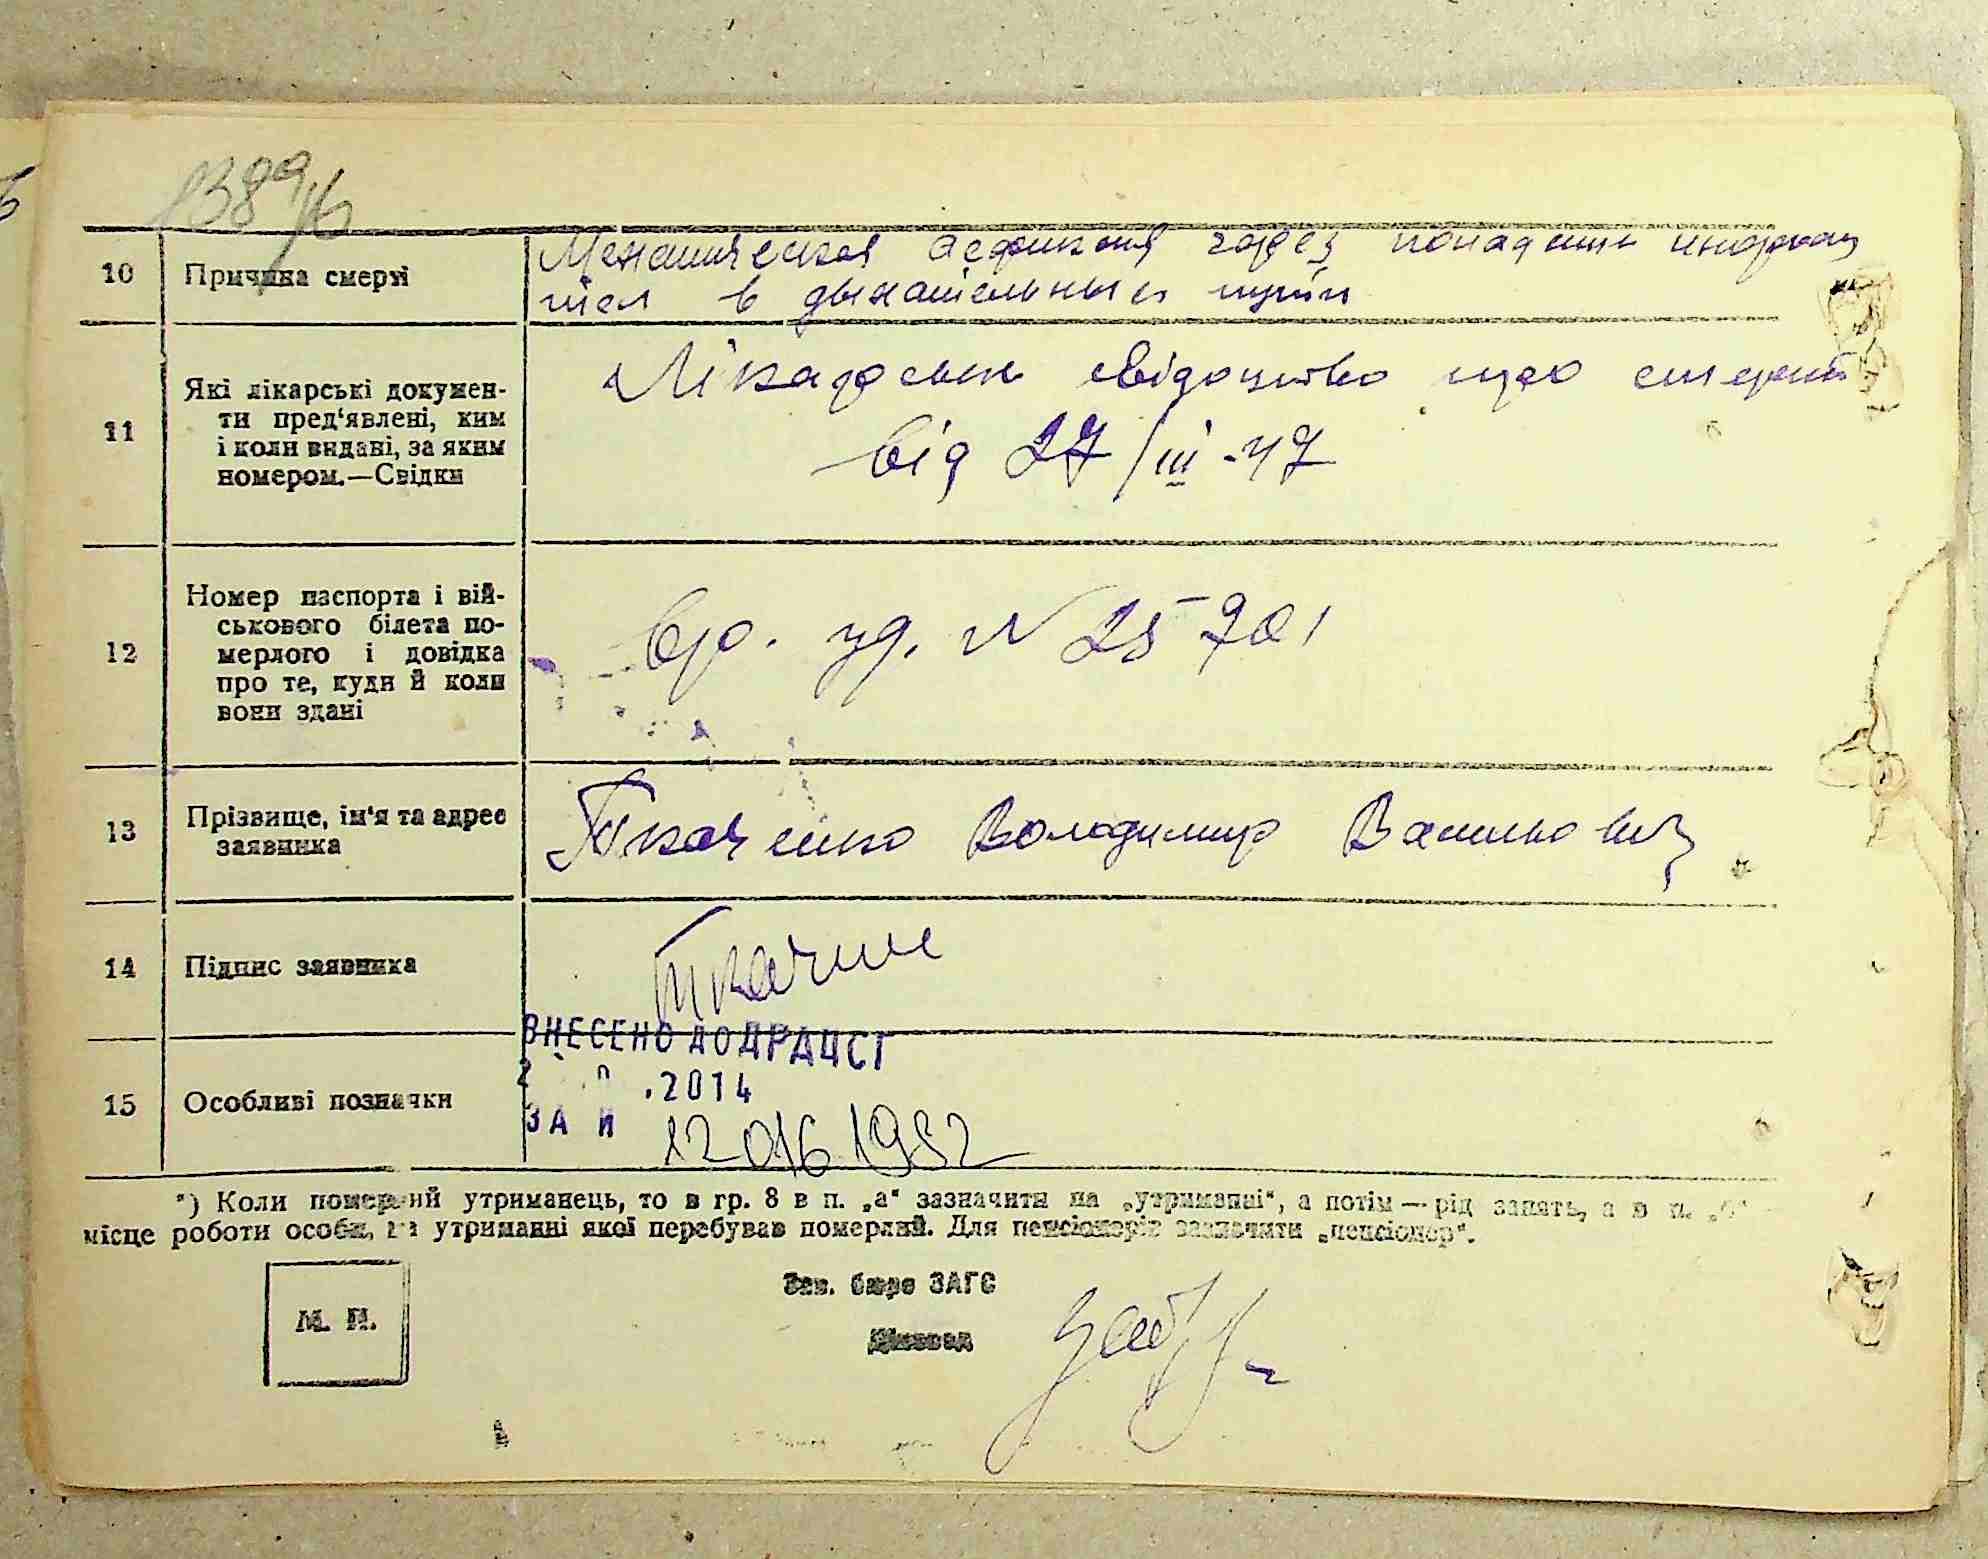 1389/б
10 Причина смерті Механическая асфиксия через попадень инорон
тел в дыхательные пути
11 Які лікарські докумен-
ти пред'явлені, ким
і коли видані, за яким
номером.—Свідки
Лікарське свідоцтво про смерть
від 27/III-47
12 Номер паспорта і вій-
ськового білета по-
мерлого і довідка
про те, куди й коли
вони здані
вр. уд. N 25701
13 Прізвище, ім'я та адрес
заявника
Ткаченко Володимир Васильович
14 Підпис заявника
ВНЕСЕНО ДО ДРАЦСГ
.2014
15 Особливі позначки
ЗА N 12016 1982
*) Коли померлий утриманець, то в гр. 8 в п. „а" зазначити на „утриманні", а потім — рід занять, а в п. „б"
місце роботи особи, на утриманні якої перебував померлий. Для пенсіонерів зазначити „пенсіонер".
Зав. бюро ЗАГС
М. П.
Діловод